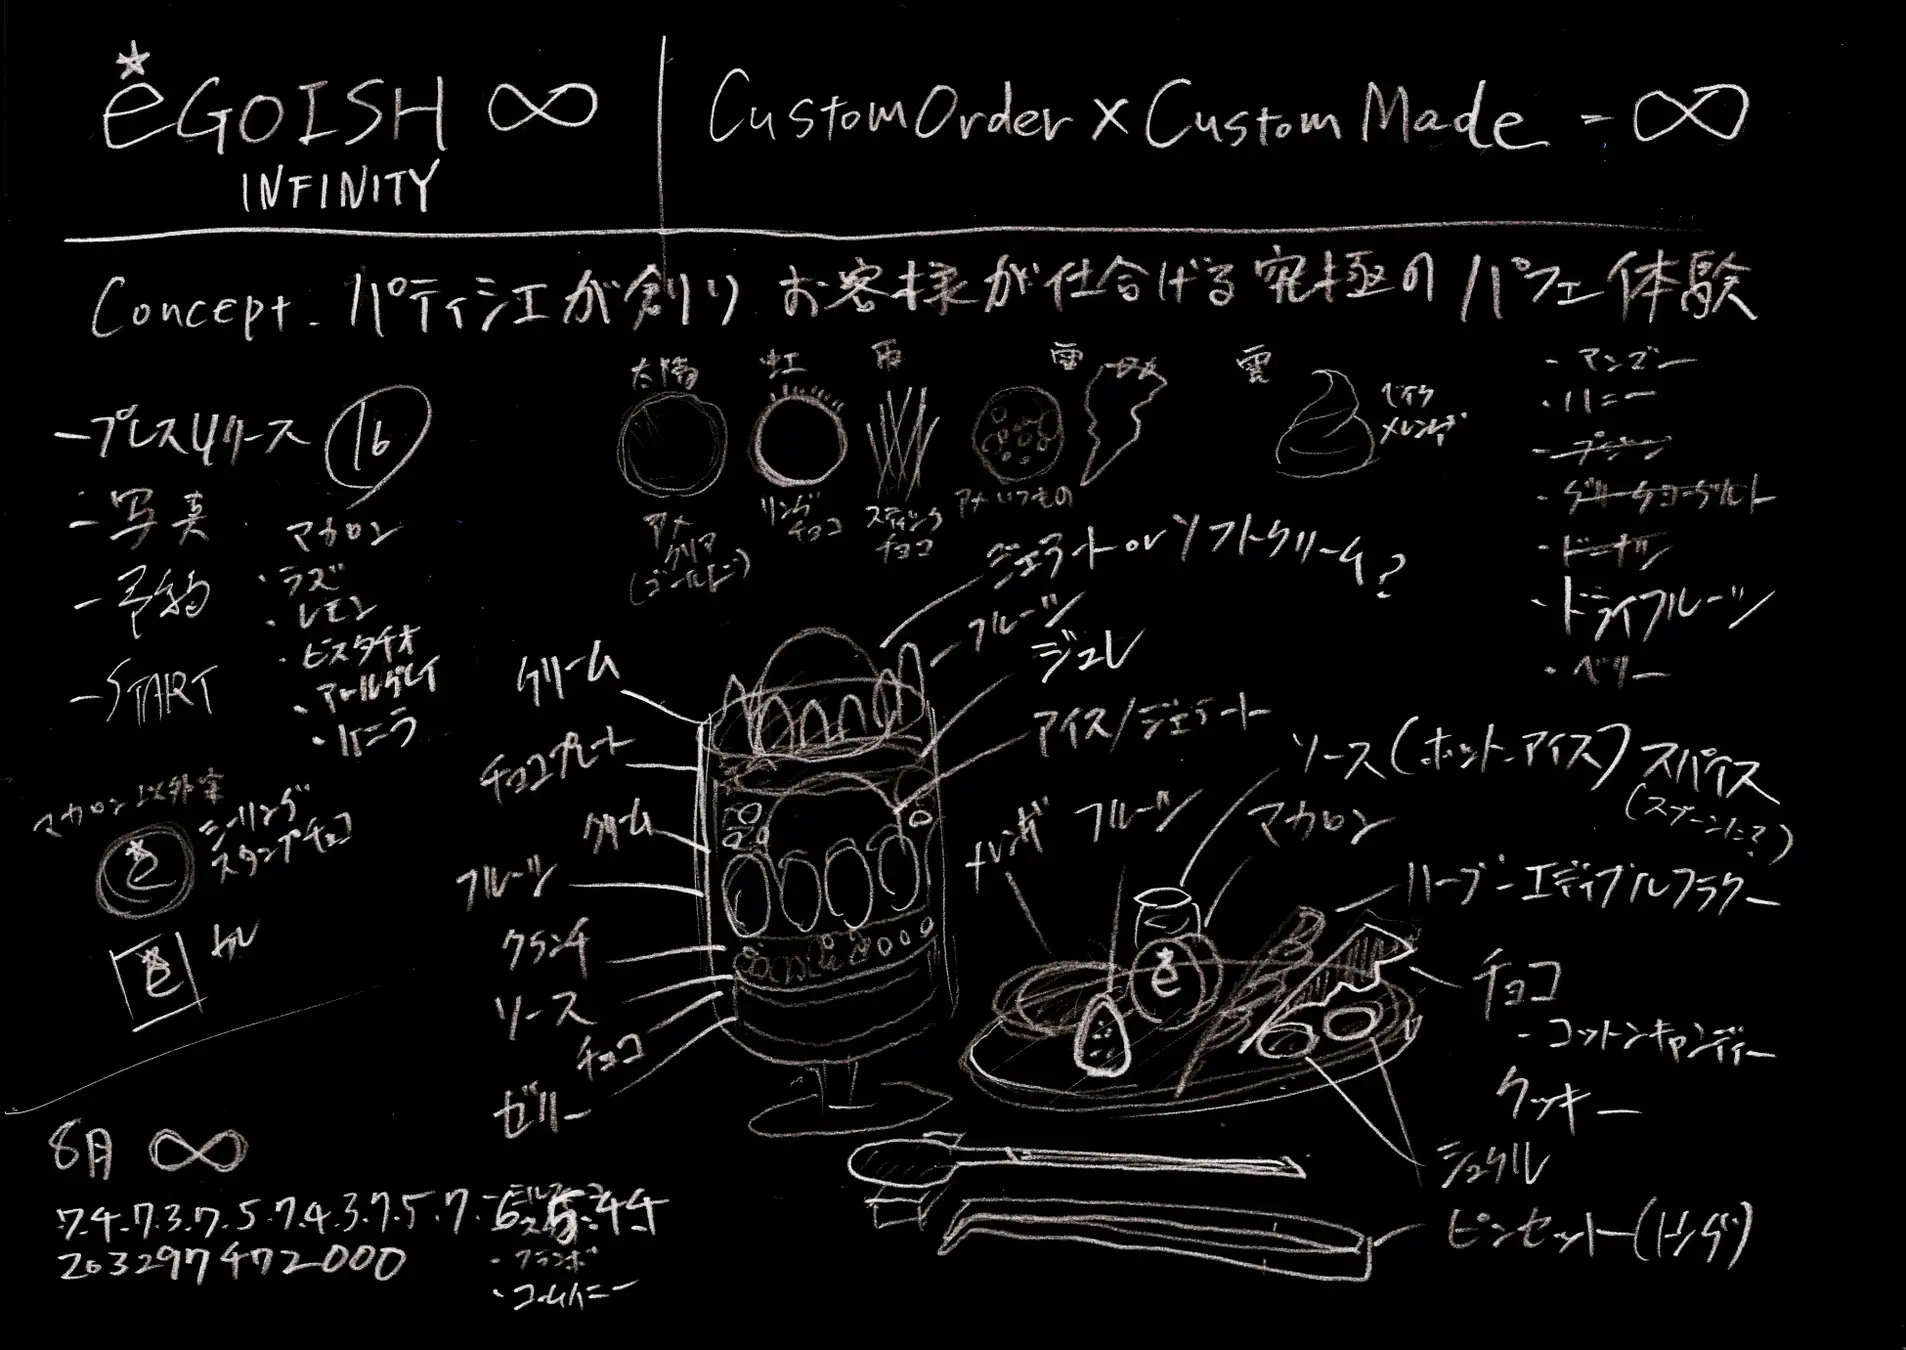 eGOISH ∞
INFINITY
CustomOrder × CustomMade = ∞
Concept. パティシエが創り お客様が仕上げる究極の パフェ体験
-プレスリリース 16
-写真
-予約
-START
マカロン
・ラズ
・レモン
・ピスタチオ
・アールグレイ
・バニラ
太陽
虹
雨
雷
雲
アメ
クリア
(ゴールド)
リング
チョコ
スティック
チョコ
アメいつもの
ベイク
メレンゲ
・マンゴー
・ハニー
・プラン
・グリークヨーグルト
・ドーナツ
・ドライフルーツ
・ベリー
ジェラートorソフトクリーム?
フルーツ
ジュレ
アイス/ジェラート
クリーム
チョコプレート
クリーム
フルーツ
クランチ
ソース
チョコ
ゼリー
マカロン以外案
シーリング
スタンプチョコ
e
e
メレンゲ
フルーツ
ソース(ホット-アイス)
スパイス
(スプーンに?)
マカロン
ハーブ-エディブルフラワー
e
チョコ
-コットンキャンディー
クッキー
ピンセット(トング)
8月 ∞
7.4.7.3.7.5.7.4.3.7.5.7.6.5.4.4
203297472000
・フランボ